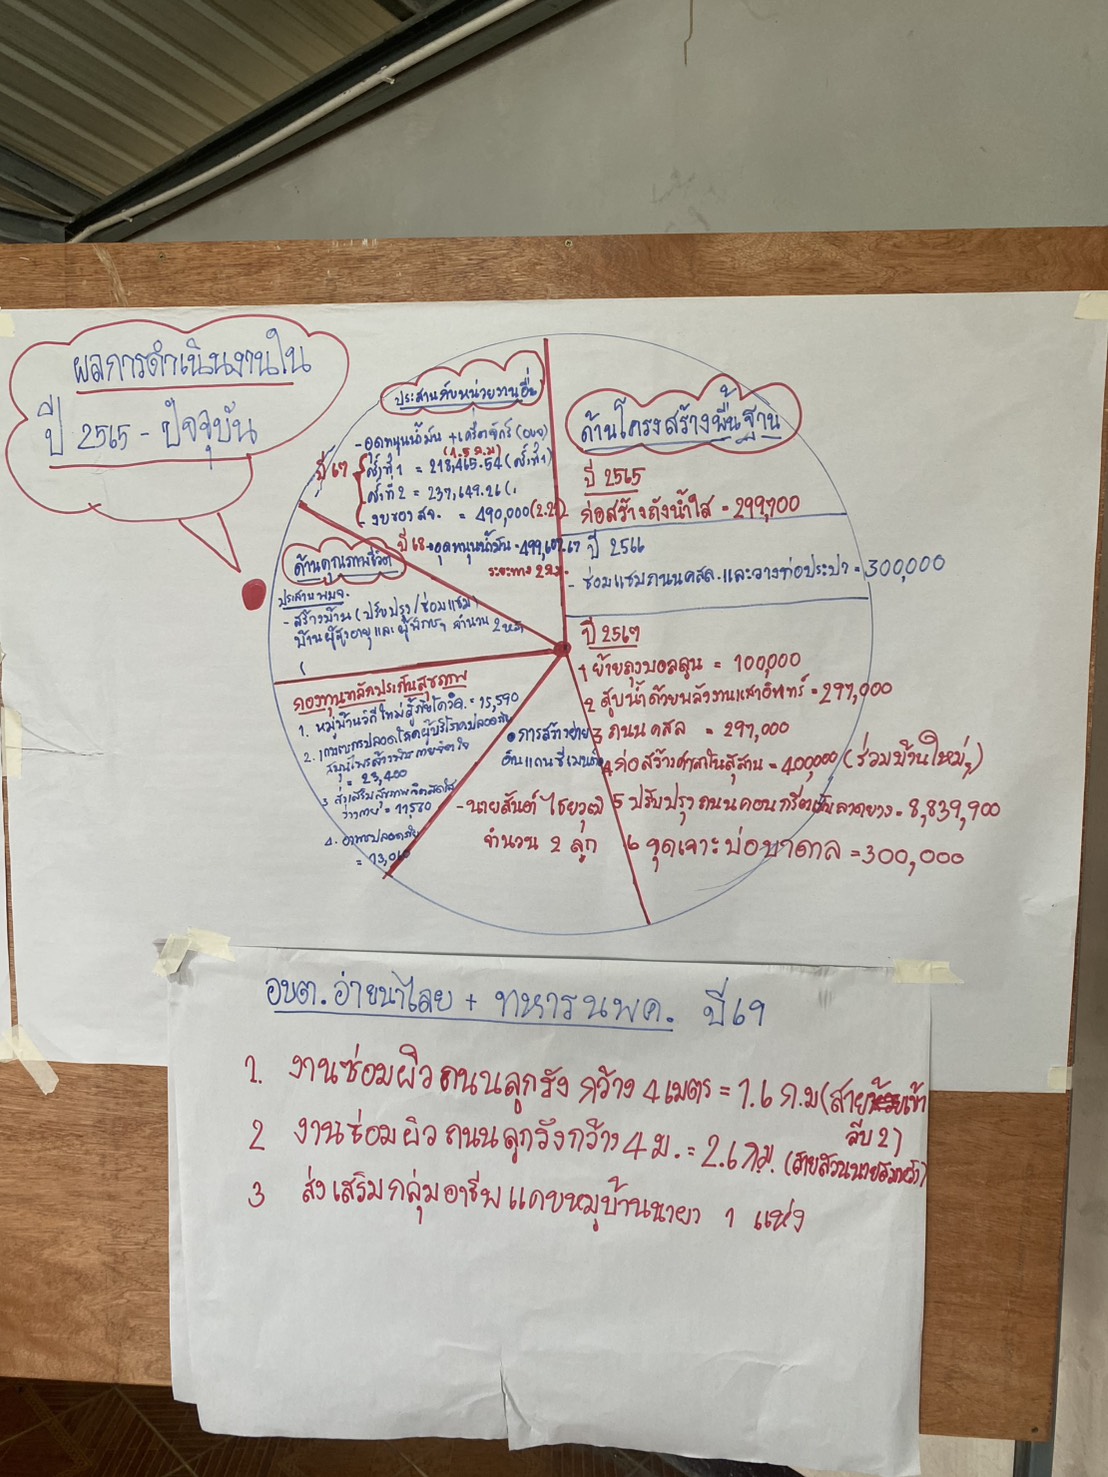 ผลการดำเนินงานใน
ปี 2565 - ปัจจุบัน
ประสานกับหน่วยงานอื่น
- อุดหนุนน้ำมัน + เครื่องจักร (อบจ)
(1.5 ก.ม)
ปี 67
ครั้งที่ 1 = 218,465.54 (ครั้งที่ 1)
ครั้งที่ 2 = 237,649.26 (
- งบของ สจ. = 490,000 (2.2
ปี 68 - อุดหนุนน้ำมัน = 499,607.67
ระยะทาง 2
ด้านโครงสร้างพื้นฐาน
ปี 2565
- ก่อสร้างถังน้ำใส = 299,700
ปี 2566
- ซ่อมแซมถนน คสล. และวางท่อประปา = 300,000
ปี 2567
1 ย้ายถังบอลลูน = 100,000
2 สูบน้ำด้วยพลังงานแสงอาทิตร์ = 297,000
3 ถนน คสล = 297,000
4 ก่อสร้างศาลาในสุสาน = 400,000 (ร่วมบ้านใหม่ฯ)
5 ปรับปรุงถนนคอนกรีตเป็นลาดยาง = 8,839,900
6 ขุดเจาะบ่อบาดาล = 300,000
ด้านคุณภาพชีวิต
ประสาน พมจ.
- สร้างบ้าน (ปรับปรุง/ซ่อมแซม)
บ้านผู้สูงอายุและผู้พิการฯ จำนวน 2 หลัง
(
กองทุนหลักประกันสุขภาพ
1. หมู่บ้านวิถีใหม่สู้ภัยโควิด. = 15,590
2. เกษตรกรปลอดโรคผู้บริโภคปลอดภัย
สมุนไพรล้างพิษกายจิตใจ
= 23,400
3 ส่งเสริมสุขภาพจิตสดใส
ร่างกาย = 11,560
4. อาหารปลอดภัย
= 13,010
• การสร้างฝาย
- นายสันต์ ไชยวุฒิ
จำนวน 2 ลูก
อบต.อ่ายนาไลย + ทหาร นพค. ปี 69
1. งานซ่อมผิวถนนลูกรัง กว้าง 4 เมตร = 1.6 ก.ม (สายห้วยเข้า
ลีบ 2)
2 งานซ่อมผิวถนนลูกรังกว้าง 4 ม. = 2.6 กม.
3 ส่งเสริมกลุ่มอาชีพแคบหมูบ้านนายา 1 แห่ง